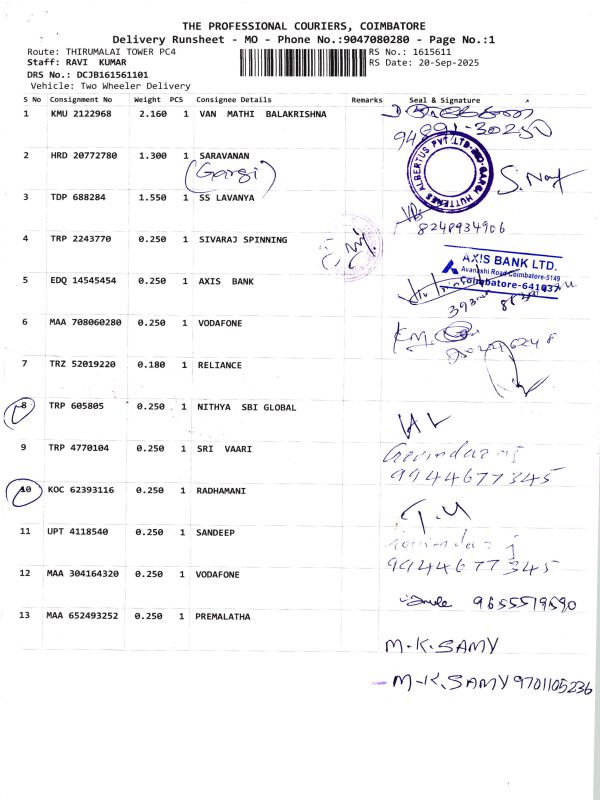 THE PROFESSIONAL COURIERS, COIMBATORE
Delivery Runsheet - MO - Phone No.:9047080280 - Page No.:1
Route: THIRUMALAI TOWER PC4 RS No.: 1615611
Staff: RAVI KUMAR RS Date: 20-Sep-2025
DRS No.: DCJB161561101
Vehicle: Two Wheeler Delivery
S No Consignment No Weight PCS Consignee Details Remarks Seal & Signature
1 KMU 2122968 2.160 1 VAN MATHI BALAKRISHNA
2 HRD 20772780 1.300 1 SARAVANAN
(Gargi)
HUTTENES ALBERTUS PVT LTD
3 TDP 688284 1.550 1 SS LAVANYA
8248934906
4 TRP 2243770 0.250 1 SIVARAJ SPINNING
AXIS BANK LTD.
Avanashi Road Coimbatore-5149
Coimbatore-641037
5 EDQ 14545454 0.250 1 AXIS BANK
6 MAA 708060280 0.250 1 VODAFONE
7 TRZ 52019220 0.180 1 RELIANCE
8 TRP 605805 0.250 1 NITHYA SBI GLOBAL
9 TRP 4770104 0.250 1 SRI VAARI
9944677345
10 KOC 62393116 0.250 1 RADHAMANI
11 UPT 4118540 0.250 1 SANDEEP
9944677345
12 MAA 304164320 0.250 1 VODAFONE
9655519590
13 MAA 652493252 0.250 1 PREMALATHA
M.K.SAMY
M.K.SAMY 9701105236